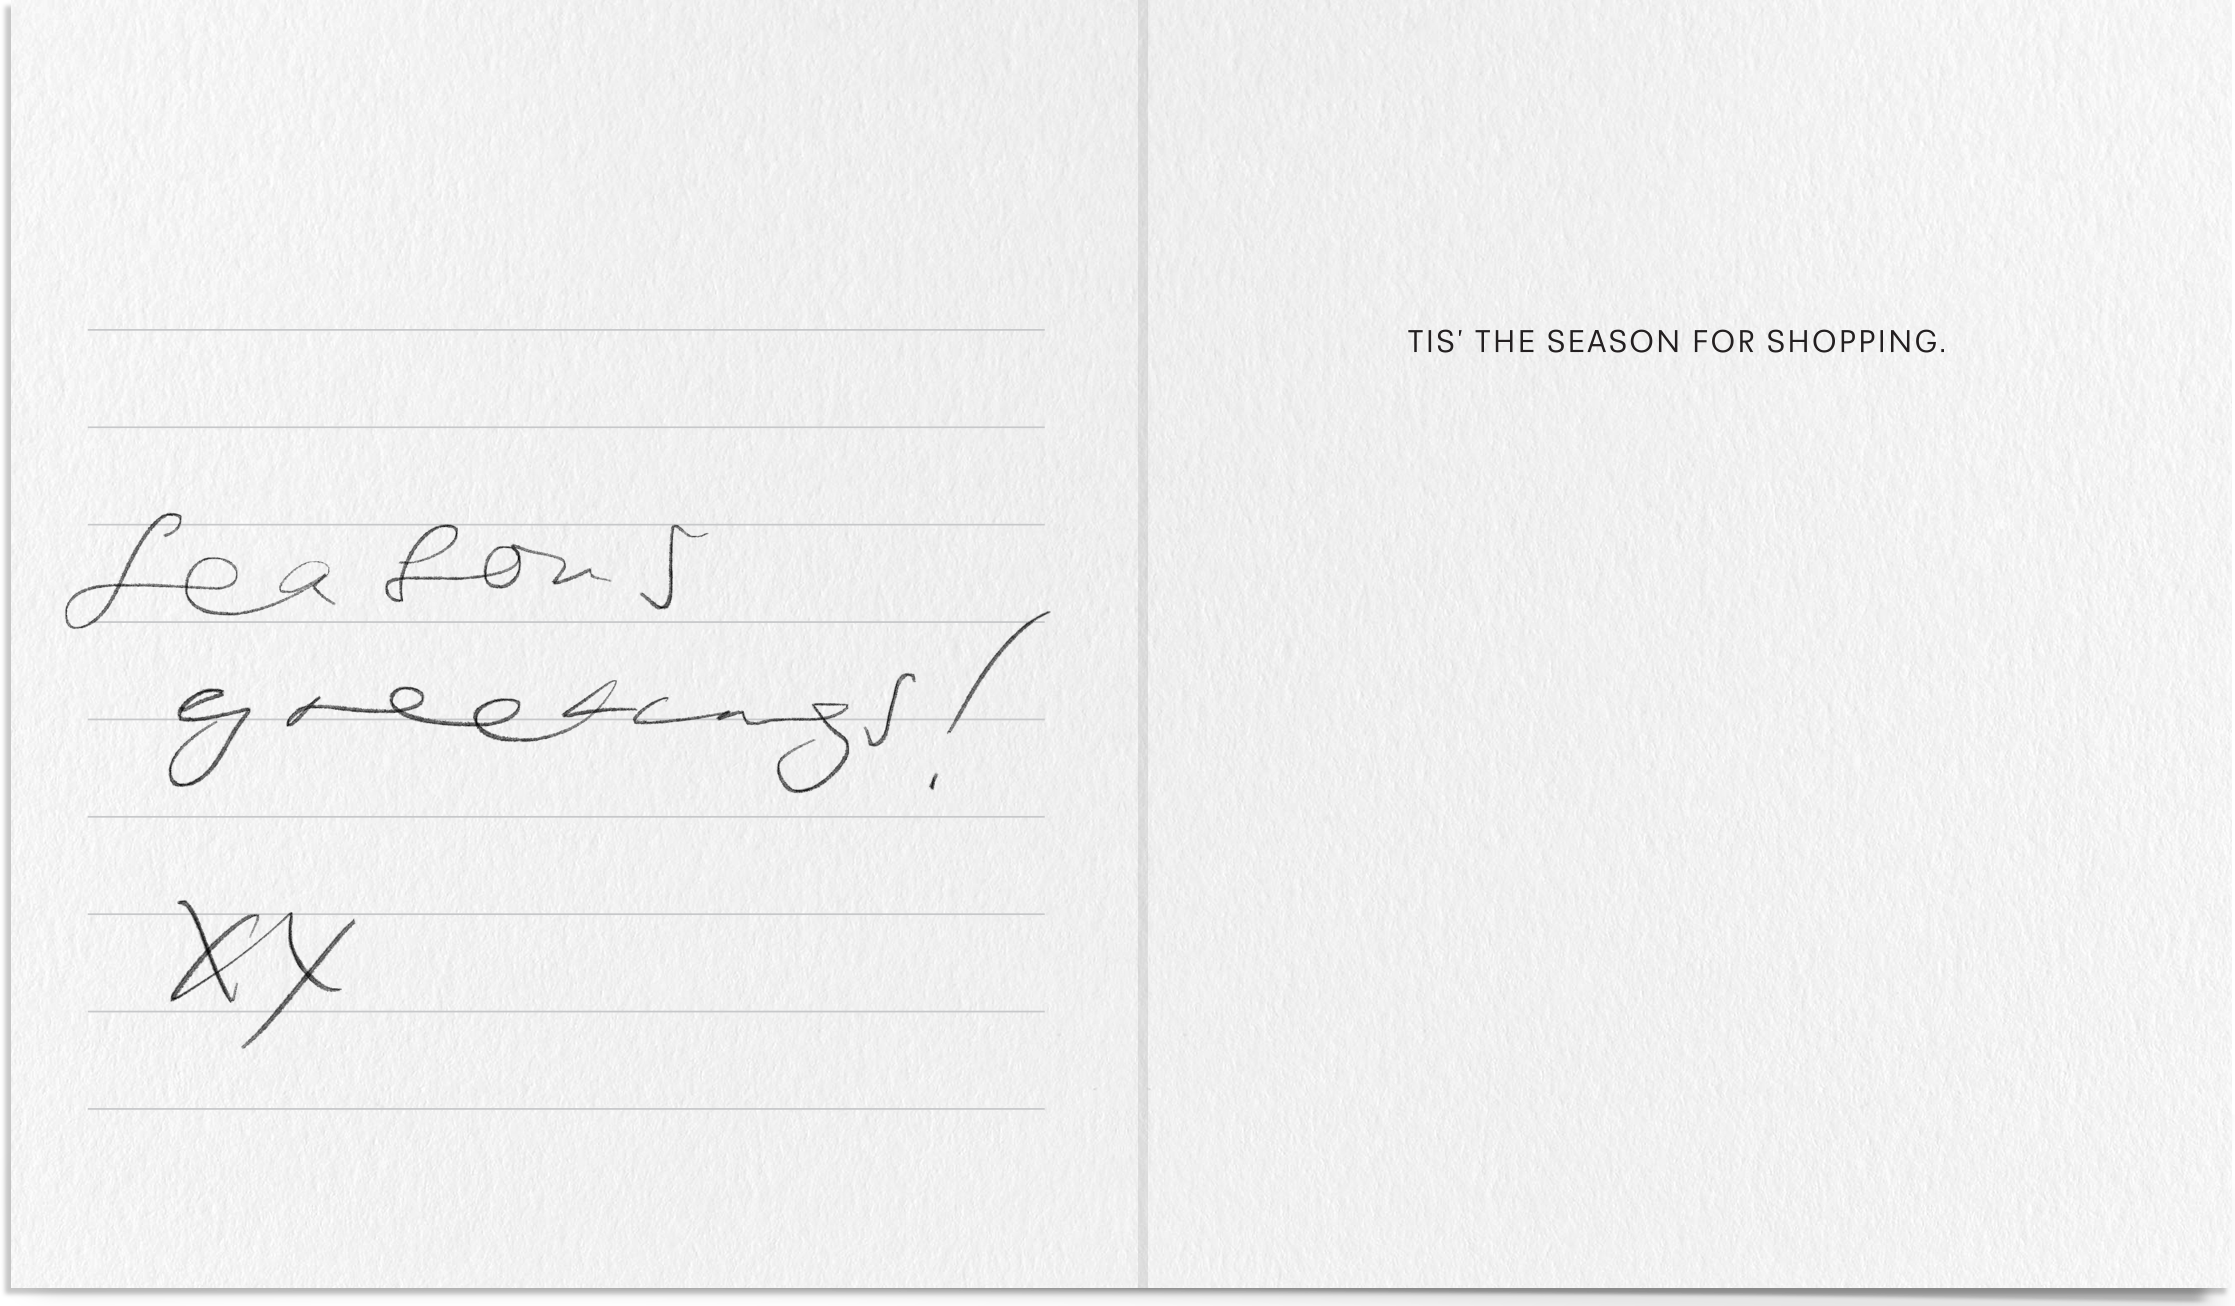 Seasons
greetings!
xx
TIS' THE SEASON FOR SHOPPING.